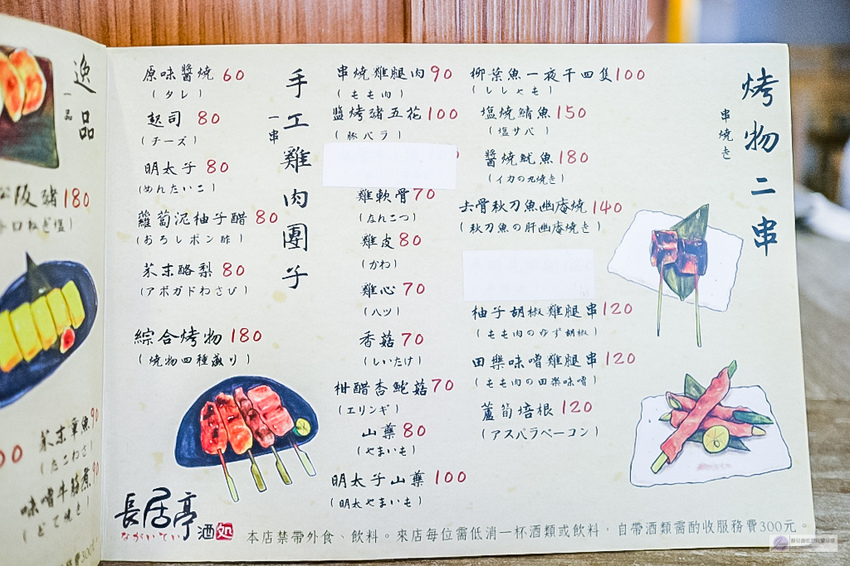 烤物二串
串焼き
柳葉魚一夜干四隻100
(ししゃも)
塩燒鯖魚150
(塩サバ)
醬燒魷魚180
(イカの丸焼き)
去骨秋刀魚幽庵燒140
(秋刀魚の肝幽庵焼き)
柚子胡椒雞腿串120
(もも肉のゆず胡椒)
田樂味噌雞腿串120
(もも肉の田楽味噌)
蘆筍培根120
(アスパラベーコン)
串燒雞腿肉90
(もも肉)
鹽烤豬五花100
(豚バラ)
雞軟骨70
(なんこつ)
雞皮80
(かわ)
雞心70
(ハツ)
香菇70
(しいたけ)
柑醋杏鮑菇70
(エリンギ)
山藥80
(やまいも)
明太子山藥100
(明太やまいも)
手工雞肉團子
一串
原味醬燒60
(タレ)
起司80
(チーズ)
明太子80
(めんたいこ)
蘿蔔泥柚子醋80
(おろしポン酢)
芥末酪梨80
(アボガドわさび)
綜合烤物180
(焼物四種盛り)
長居亭酒処
ながいてい
本店禁帶外食、飲料。來店每位需低消一杯酒類或飲料，自帶酒類需酌收服務費300元。
逸品
一品
阪豬180
ねぎ塩)
芥末章魚90
(たこわさ)
味噌牛筋煮90
(どて焼き)